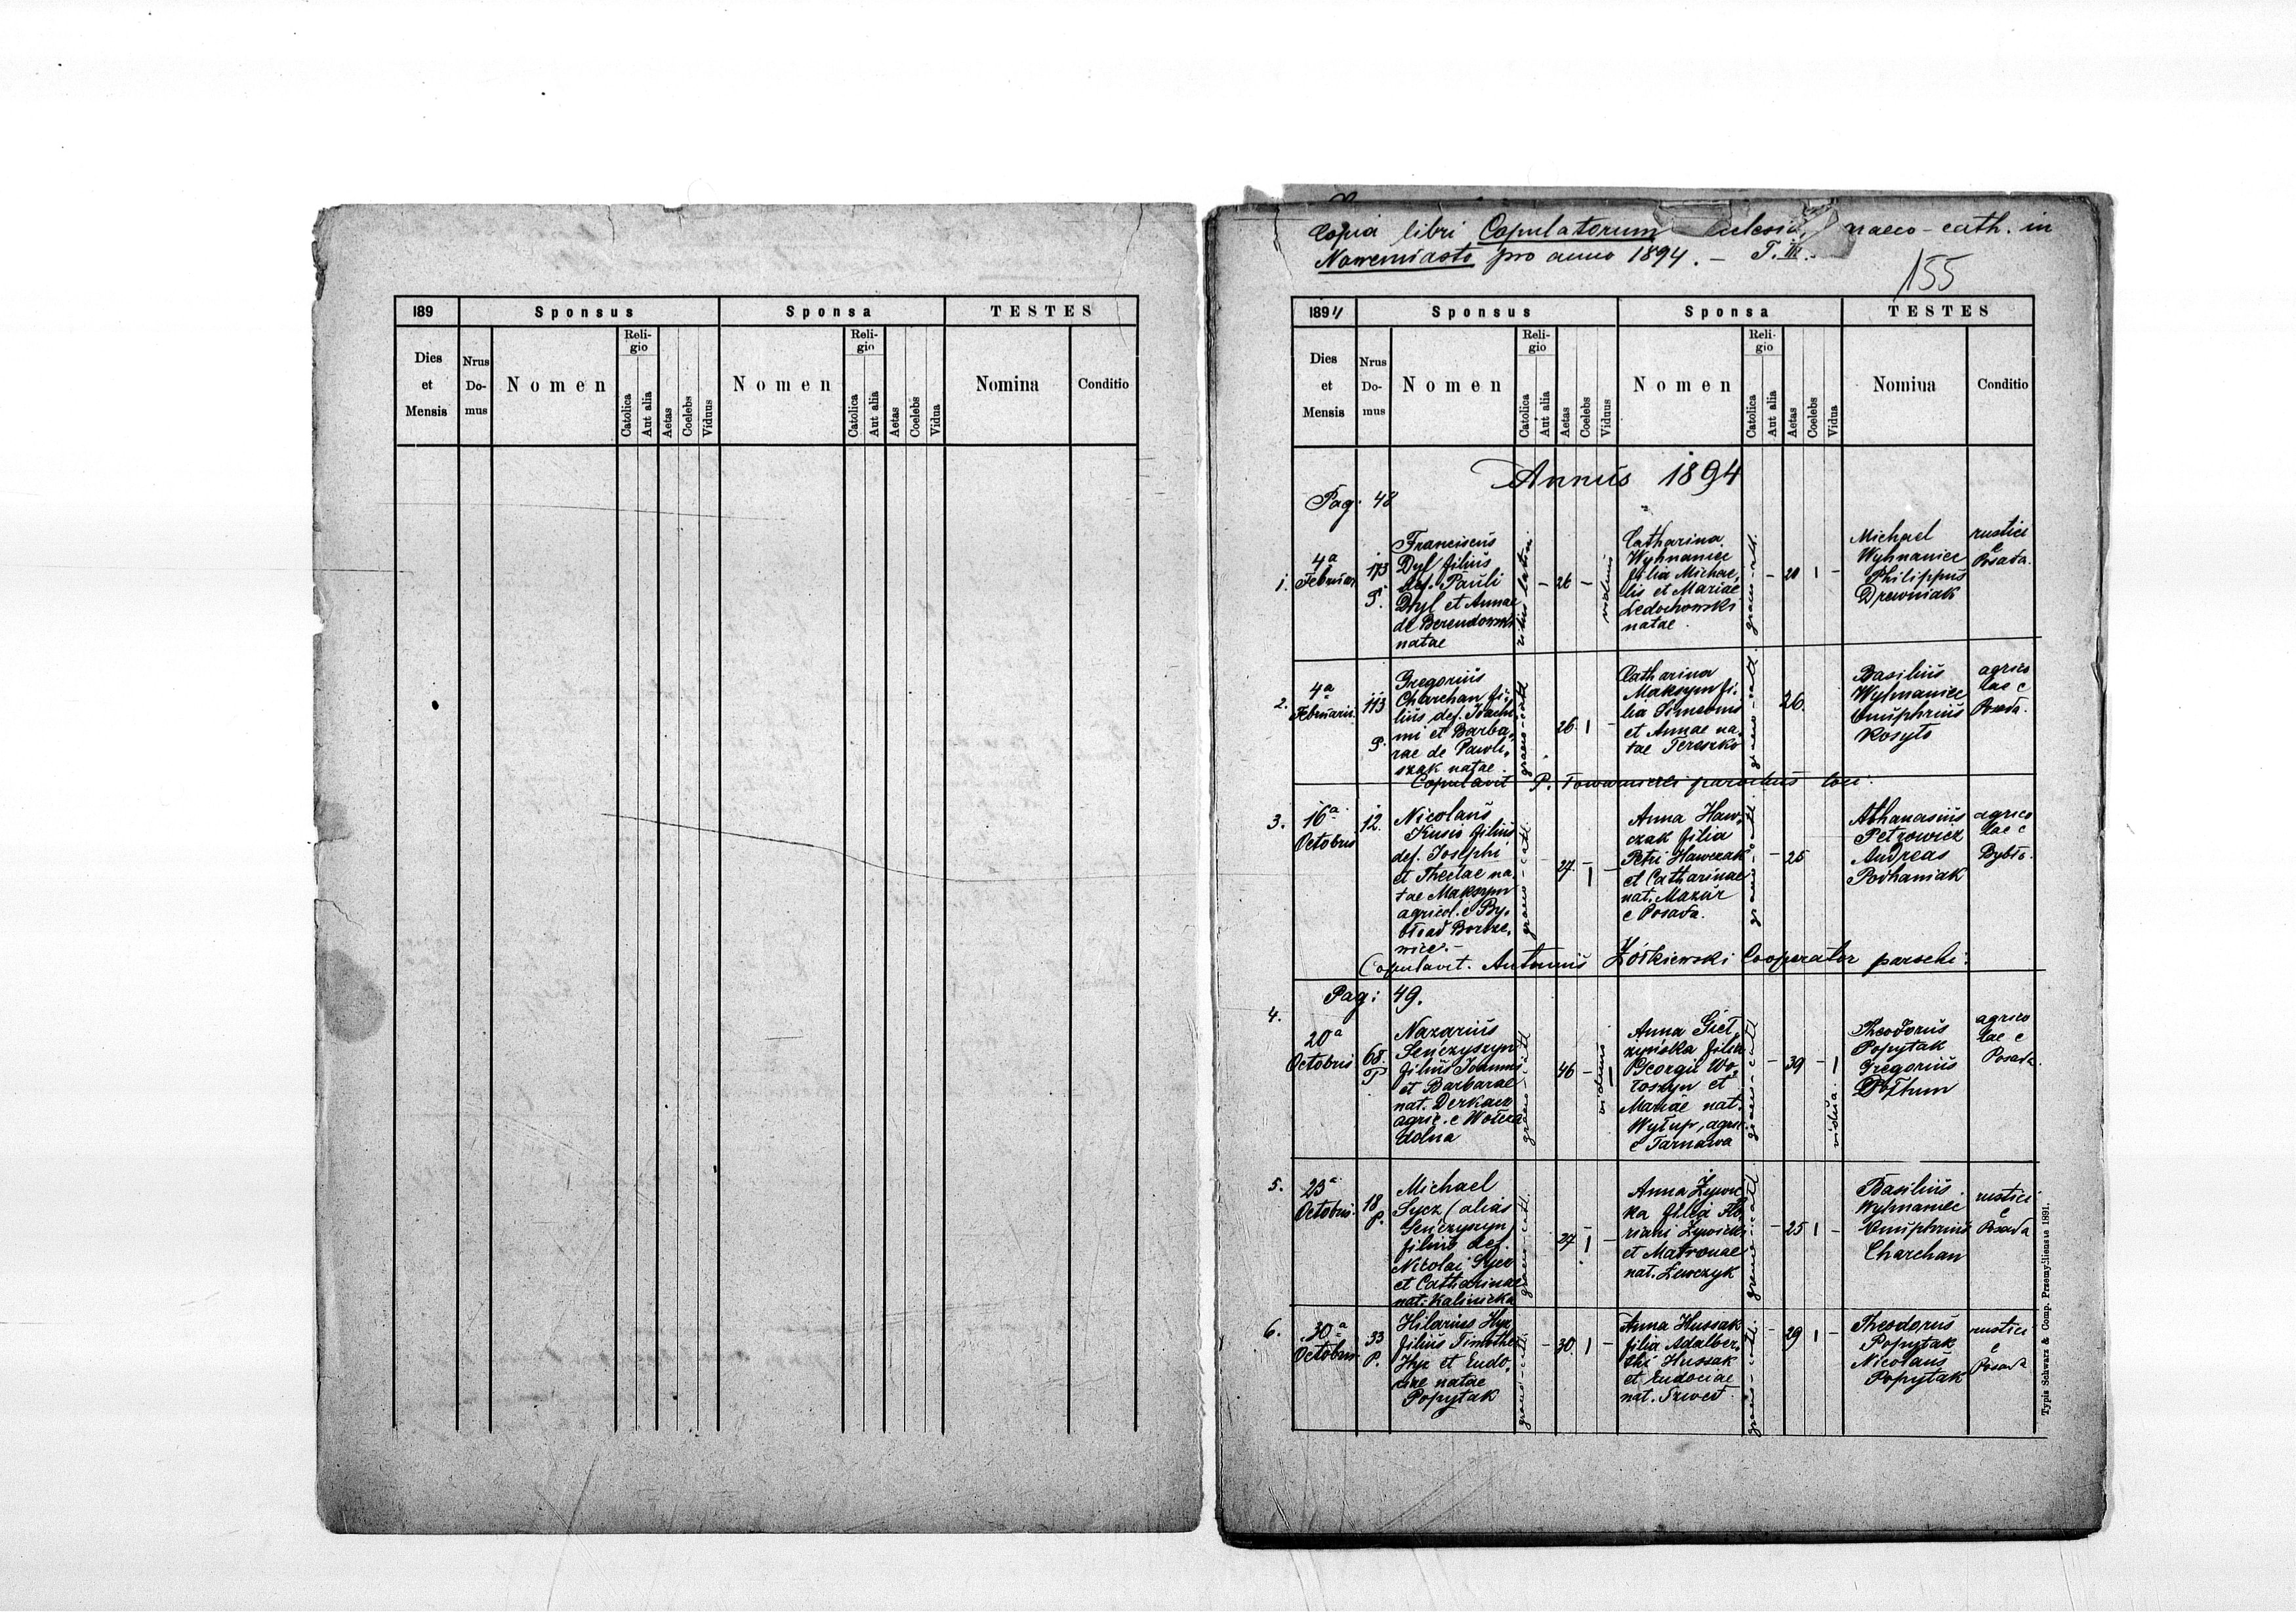 189
Sponsus
Sponsa
TESTES
Dies
et
Mensis
Nrus
Do-
mus
Nomen
Reli-
gio
Catolica
Aut alia
Aetas
Coelebs
Viduus
Nomen
Reli-
gio
Catolica
Aut alia
Aetas
Coelebs
Vidua
Nomina
Conditio
Copia libri Copulatorum cclesiae graeco-cath. in
Nowemiasto pro anno 1894. — T. III.
155
1894
Sponsus
Sponsa
TESTES
Dies
et
Mensis
Nrus
Do-
mus
Nomen
Reli-
gio
Catolica
Aut alia
Aetas
Coelebs
Viduus
Nomen
Reli-
gio
Catolica
Aut alia
Aetas
Coelebs
Vidua
Nomina
Conditio
Annus 1894
Pag: 48
1.
4a
Februar.
173
P.
Franciscus
Dyl filius
def. Pauli
Dyl et Annae
de Berendowski
natae
ritus latin.
- 26 -
viduus
Catharina
Wyhnaniec
filia Michae,
lis et Mariae
Ledochowski
natae.
graeco-cath.
- 20 1 -
Michael
Wyhnaniec
Philippus
Drewniak
rustici
e
Posada.
2.
4a
Februarii.
113
P.
Gregorius
Charchan fi,
lius def. Joachi
mi et Barba,
rae de Pawli,
szak natae.
graeco-cath.
26. 1 -
Catharina
Maksym fi,
lia Simeonis
et Annae na,
tae Tereszko
graeco-cath.
26.
Basilius
Wyhnaniec
Onuphrius
Kosyto
agrico
lae e
Posada.
Copulavit P. Towarnicki parochus loci.
3.
16a
Octobris
12.
Nicolaus
Kusio filius
def. Josephi
et Theclae na,
tae Maksym
agricol. e By,
bło ad
wice.-
graeco-cath.
- 27. 1 -
Anna Haw,
czak filia
Petri Hawczak
et Catharinae
nat. Mazur
e Posada.
graeco-cath.
- 25
Athanasius
Petrowicz
Andreas
Podhaniak
agrico
lae e
Bybło.
Copulavit. Antonius Żółkiewski Cooperator parochi.
Pag: 49.
4.
20a
Octobris
68.
P
Nazarius
Senczyszyn
filius Joannis
et Barbarae
nat. Derkacz
agric. e Wołcza
dolna
graeco-cath.
46 -
viduus
Anna Giet,
zyńska filia
Georgii Wo,
łoszyn et
Mariae nat.
Wyłup, agric.
e Tarnawa
graeco-cath.
- 39 - 1
vidua.
Theodorus
Popytak
Gregorius
Dołhun
agrico
lae e
Posada.
5.
23a
Octobris.
18
P.
Michael
Sycz (alias
Senczyszyn)
filius def.
Nicolai Sycz
et Catharinae
nat: Kalinicka
graeco-cath.
27 1 -
Anna Żywic
ka filia Ad
riani Żywicki
et Matronae
nat. Lewczyk
graeco-cath.
- 25 1 -
Basilius
Wyhnaniec
Onuphrius
Charchan
rustici
e
Posada
6.
30a
Octobris
33
P.
Hilarius Hyz
filius Timothei
Hyz et Eudo,
ciae natae
Popytak
graeco-cath.
- 30. 1 -
Anna Hussak
filia Adalber,
thi Hussak
et Eudociae
nat.
graeco-cath.
- 29 1 -
Theodorus
Popytak
Nicolaus
Popytak
rustici
e
Posada
Typis Schwarz & Comp. Przemysliensis 1891.